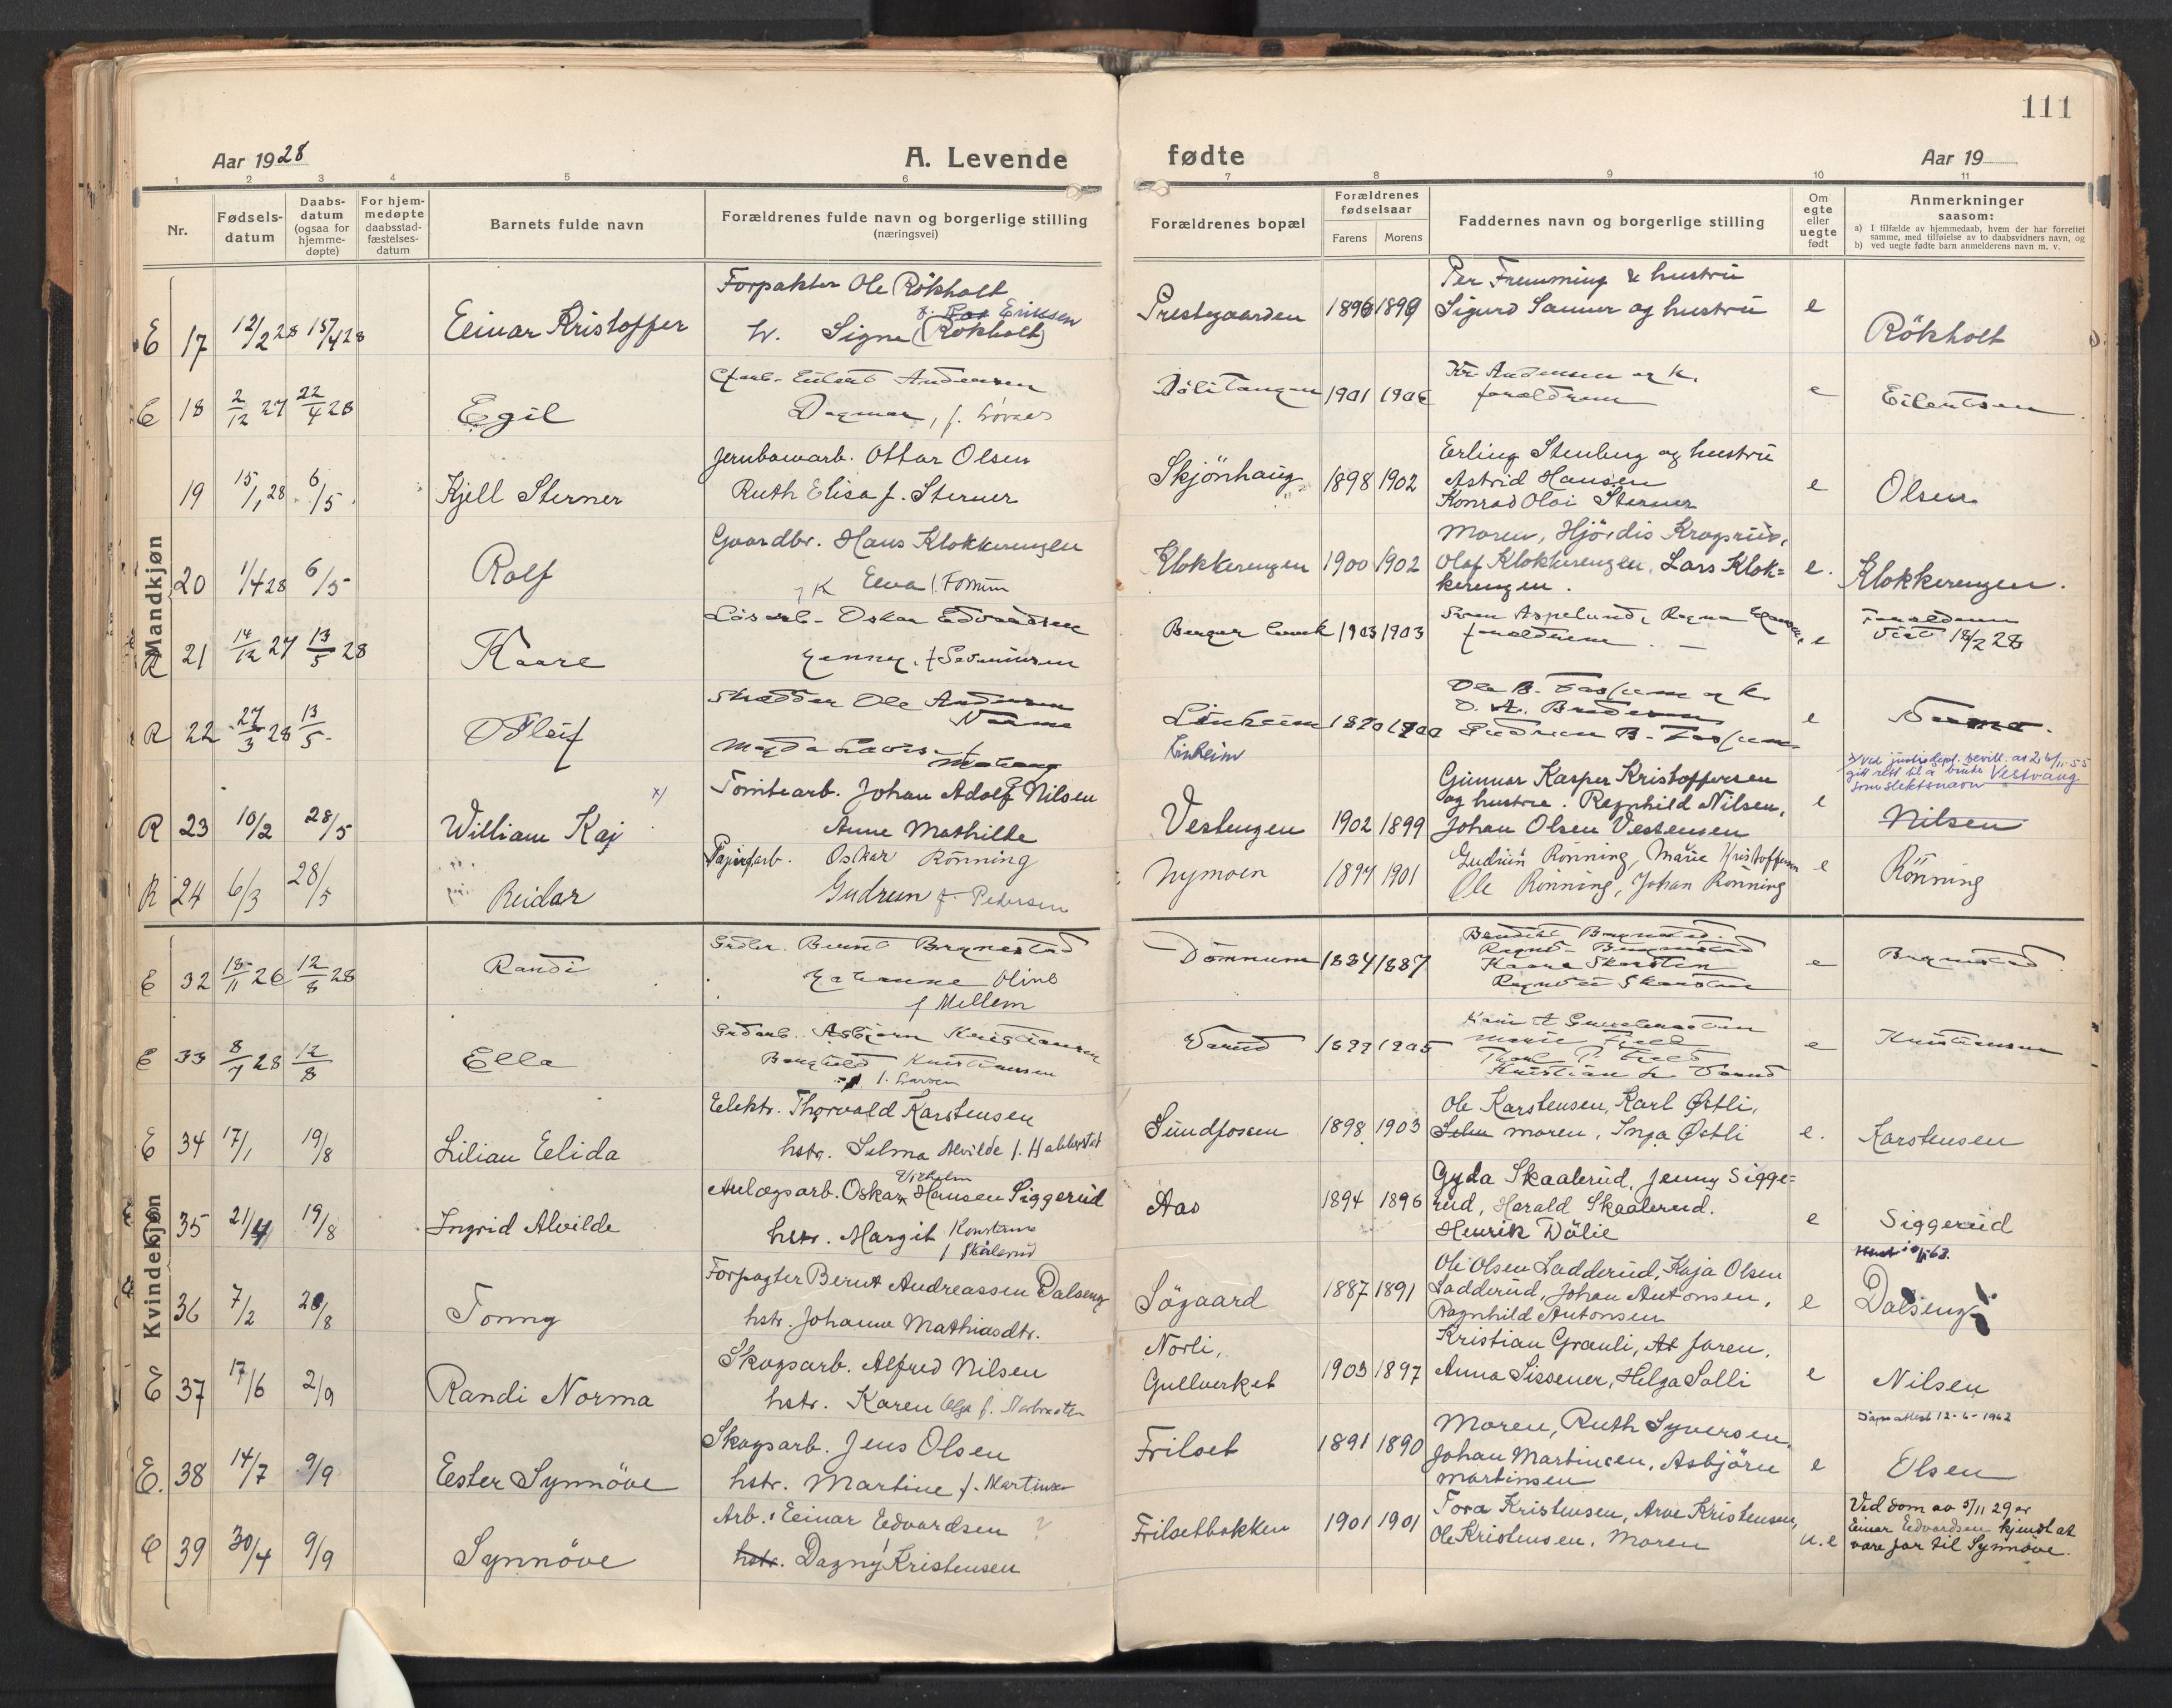 111
Aar 1928
A. Levende
fødte
Aar 19
1 2 3 4 5 6 7 8 9 10 11
Nr.
Fødsels-
datum
Daabs-
datum
(ogsaa for
hjemme-
døpte)
For hjem-
medøpte
daabsstad-
fæstelses-
datum
Barnets fulde navn
Forældrenes fulde navn og borgerlige stilling
(næringsvei)
Forældrenes bopæl
Forældrenes
fødselsaar
Farens Morens
Faddernes navn og borgerlige stilling
Om
egte
eller
uegte
født
Anmerkninger
saasom:
a) I tilfælde av hjemmedaab, hvem der har forrettet
samme, med tilføielse av to daabsvidners navn, og
b) ved uegte fødte barn anmelderens navn m. v.
Mandkjøn
E 17 12/2 28 15/4 28 Einar Kristoffer
Forpakter Ole Rökholt
f. Eriksen
h. Signe (Rökholt)
Prestegaarden 1896 1899
Per Fremming & hustru
Sigurd Sanner og hustru
e
Rökholt
E 18 2/12 27 22/4 28 Egil
Andersen
Dagmar, f.
1901 1906
Kr. Andersen og k.
foræeldrene
e
Eilertsen
19 15/1 28 6/5 Kjell Sterner
Jernbanearb. Ottar Olsen
Ruth Elisa f. Sterner
Skjönhaug 1898 1902
Erling Stenberg og hustru
Astrid Hansen
Konrad Olai Sterner
e
Olsen
20 1/4 28 6/5 Rolf
Gaardbr. Hans Klokkerengen
K Elva f. Fossum
Klokkerengen 1900 1902
Moren, Hjördis Kragsrud,
Olaf Klokkerengen, Lars Klok=
kerengen.
e.
Klokkerengen.
R 21 14/12 27 13/5 28 Kaare
Lösarb. Oskar Edvardsen
Jenny, f Severinsen
Berger bruk 1903 1903
Sven Aspelund, Ragna
forældrene
e
Forældrene
Viet 18/2 28
R 22 27/3 28 13/5 Leif
Skrædder Ole Andersen
Magda Lovise f
Linheim
Linheim
1870
Ole B. Fossum og k.
Gudrun B. Fossum
e
x) Ved justisdept. bevill. av 26/11-55
gitt rett til å bruke Vestvang
som slektsnavn
R 23 10/2 28/5 William Kaj x)
Tomtearb. Johan Adolf Nilsen
Anne Mathilde
Vestengen 1902 1899
Gunnar Kasper Kristoffersen
og hustru. Ragnhild Nilsen,
Johan Olsen Vestensen
e
Nilsen
R 24 6/3 28/5 Reidar
Papirfarb. Oskar Rönning
Gudrun f. Pedersen
Nymoen 1897 1901
Gudrun Rönning, Marie Kristoffersen
Ole Rönning, Johan Rönning
e
Rönning
Kvindekjøn
E 32 18/11 26 12/8 28 Randi
Grdbr. Bernt Brynestad
Johanne Oline
f Mellem
Dömnum 1884 1887
Kaare Skarsten
Ragnhild Skarsten
e
E 33 8/7 28 12/8 Ella
Grdarb. Asbjørn Kristiansen
Borghild Kristiansen
f. Larsen
Varud 1899 1905
Marie Field
Kristian L. Varud
e
Kristiansen
E 34 17/1 19/8 Lilian Elida
Elektr. Thorvald Karstensen
hstr. Selma Alvilde f. Hakkestad
Sundfossen 1898 1903
Ole Karstensen, Karl Østli,
moren, Inga Østli
e.
Karstensen
35 21/4 19/8 Ingrid Alvilde
Vilhelm
Anlægsarb. Oskar Hansen Siggerud
hstr. Margit Konstanse
f Skålerud
Aas 1894 1896
Gyda Skaalerud, Jenny Sigge=
rud, Harald Skaalerud.
Henrik Dälie
e
Siggerud
36 7/2 28/8 Tonny
Forpagter Bernt Andreassen Dalseng
hstr. Johanne Mathiasdtr.
Sögaard 1887 1891
Ole Olsen Ladderud, Kaja Olsen
Ladderud, Johan Antonsen,
Ragnhild Antonsen
e
Dalseng
E 37 17/6 2/9 Randi Norma
Skogsarb. Alfred Nilsen
hstr. Karen Olga f.
Norli,
Gullverket
1903 1897
Kristian Grauli, At Jaren,
Anna Sissener, Helga Solli
e
Nilsen
Dåpsattest 12-6-1962
E. 38 14/7 9/9 Ester Synnöve
Skogsarb. Jens Olsen
hstr. Martine f. Martinsen
Frilset 1891 1890
Moren, Ruth Syversen,
Johan Martinsen, Asbjörn
Martinsen
e
Olsen
E 39 30/4 9/9 Synnöve
Arb.: Einar Edvardsen ?
hstr. Dagny Kristensen
Frilsetbakken 1901 1901
Tora Kristensen, Arne Kristensen,
Ole Kristensen, Moren
u.e
Ved dom av 5/11 29 er
Einar Edvardsen kjendt at
være far til Synnøve.